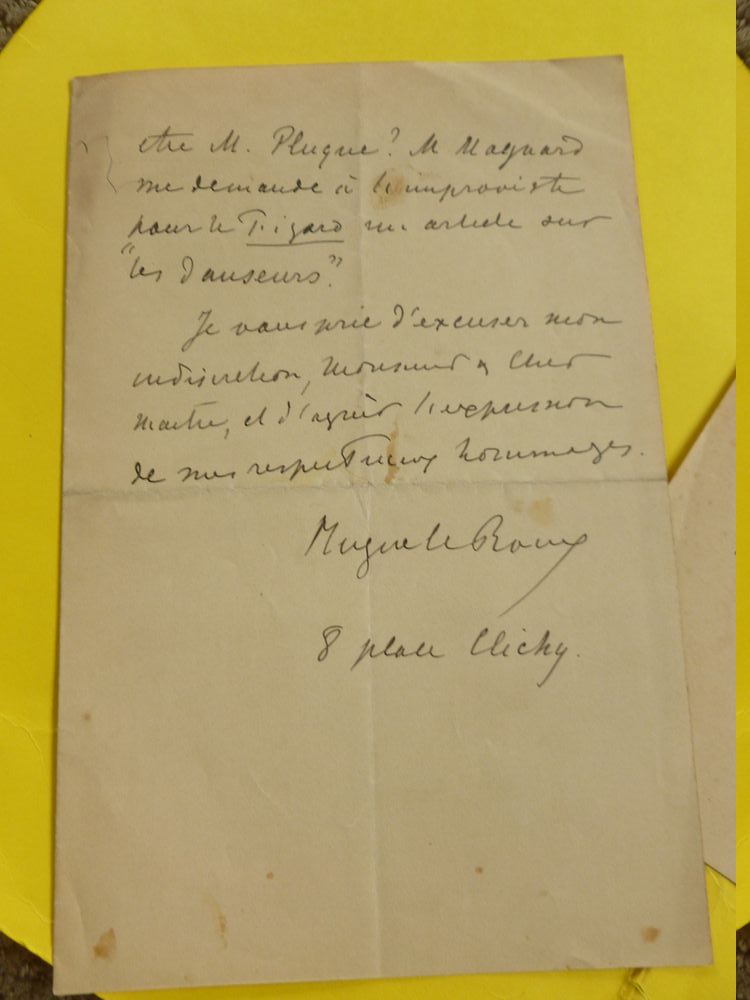 être M. Pluque? M Magnard
me demande à l'improviste
pour le Figaro un article sur
"les Danseurs".
Je vous prie d'excuser mon
indiscrétion, Monsieur & Cher
maître, et d'agréer l'expression
de mes respectueux hommages.
Hugues le Roux
8 place Clichy.